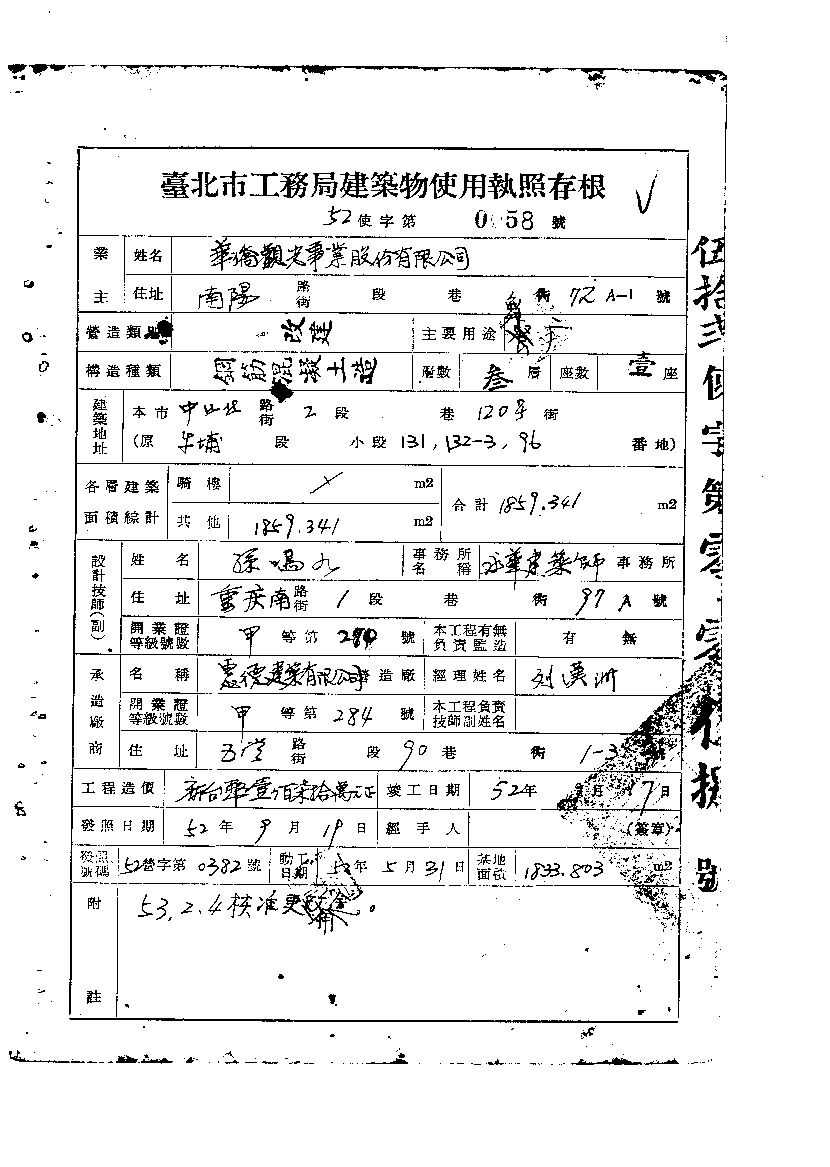 臺北市工務局建築物使用執照存根
52使字第 0 58 號
業主 姓名 華僑觀光事業股份有限公司
住址 南陽 路街 段 巷 街 72 A-1 號
營造類別 改建 主要用途
構造種類 鋼筋混凝土造 層數 叁層 座數 壹座
建築地址 本市 中山北 路街 2 段 巷 120号 街
(原 牛埔 段 小段 131, 132-3, 96 番地)
各層建築面積綜計 騎樓 m2 合計 1859.341 m2
其他 1859.341 m2
設計技師(副) 姓名 孫 九 事務所名稱 建築師事務所
住址 重慶南 路街 1 段 巷 街 97 A 號
開業證等級號數 甲等第 284 號 本工程有無負責監造 有 無
承造廠商 名稱 德建築有限公司營造廠 經理姓名 刘漢
開業證等級號數 甲等第 284 號 本工程負責技師副姓名
住址 路街 段 90 巷 街 1-3
工程造價 新台幣壹佰柒拾萬元正 竣工日期 52年 月 17日
發照日期 52年 9月 19日 經手人 (簽章)
發照號碼 52營字第 0382 號 動工日期 52年 5月 31日 基地面積 1833.803 m2
附註 53.2.4核准更
伍拾弍使字第零零伍捌號